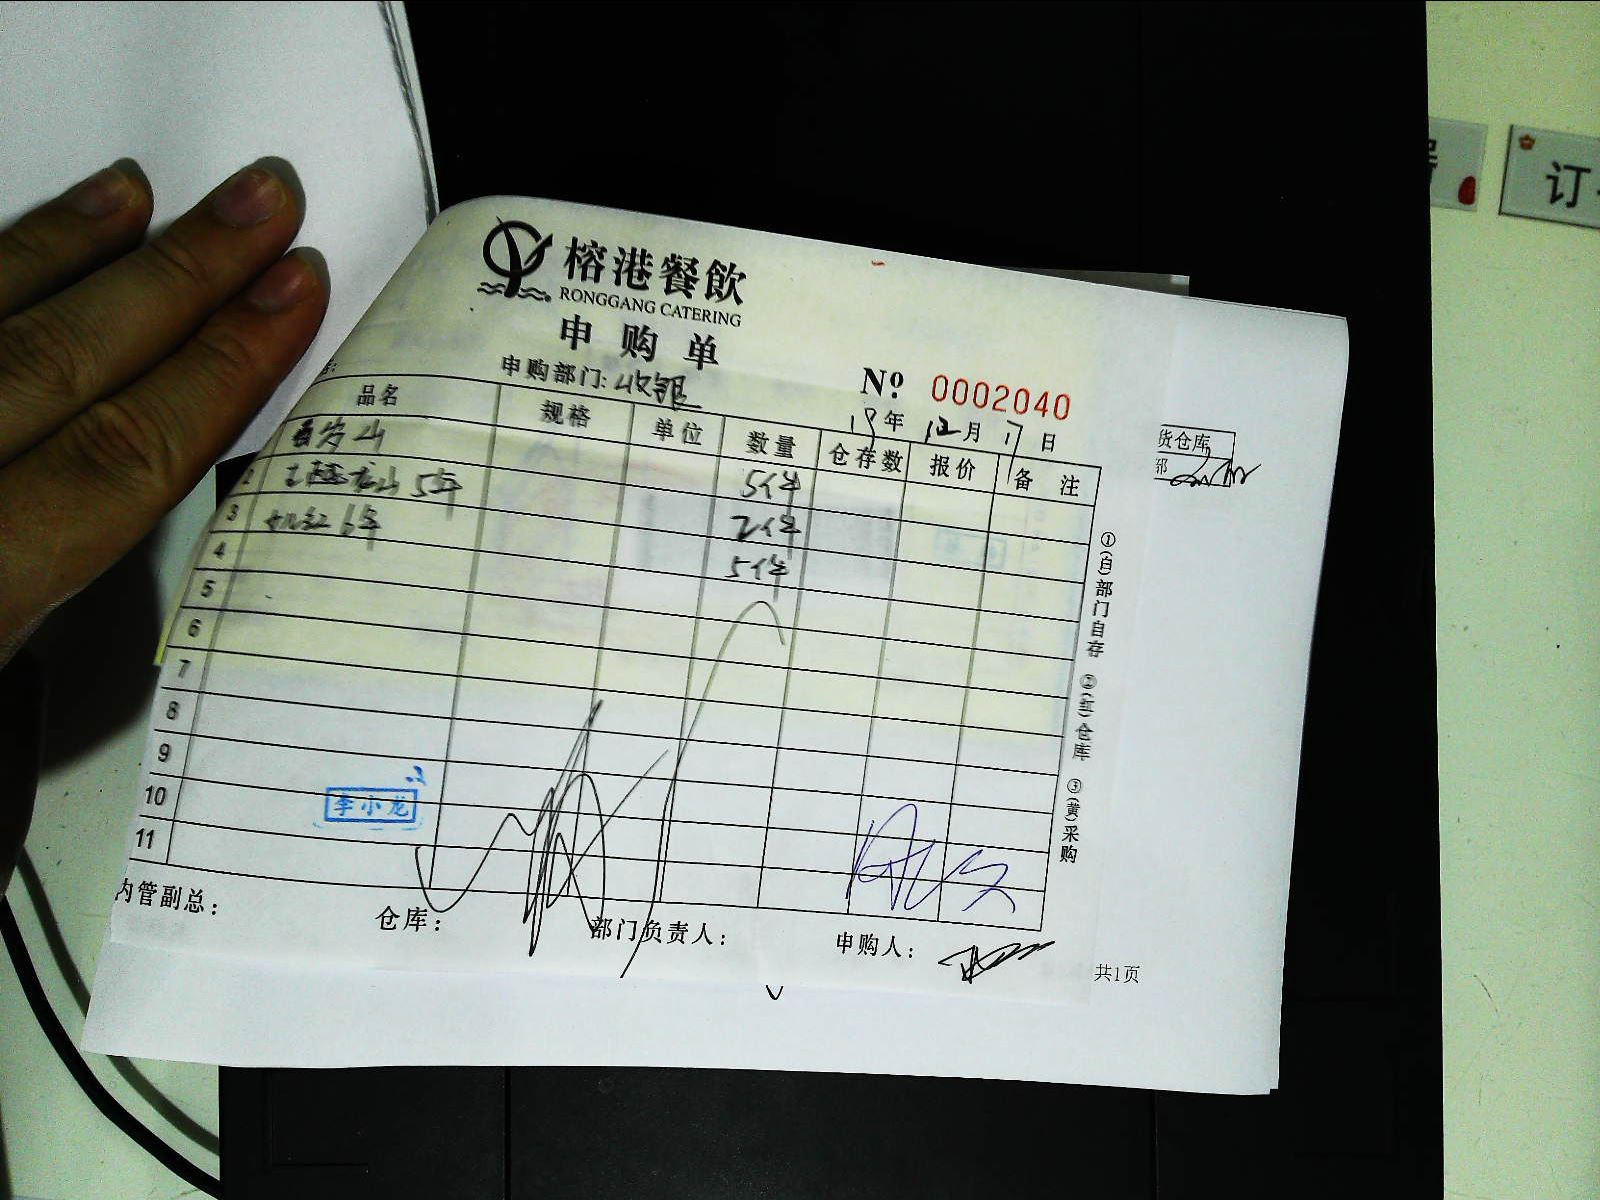 订
榕港餐飲
RONGGANG CATERING
申购单
申购部门: 收银
№ 0002040
19年12月17日
品名 规格 单位 数量 仓存数 报价 备注
5件
2 5年 2件
3 女儿红 6年 5件
4
5
6
7
8
9
10
11
李小龙
内管副总:
仓库:
部门负责人:
申购人:
①(白)部门自存 ②(红)仓库 ③(黄)采购
货仓库
部
共1页